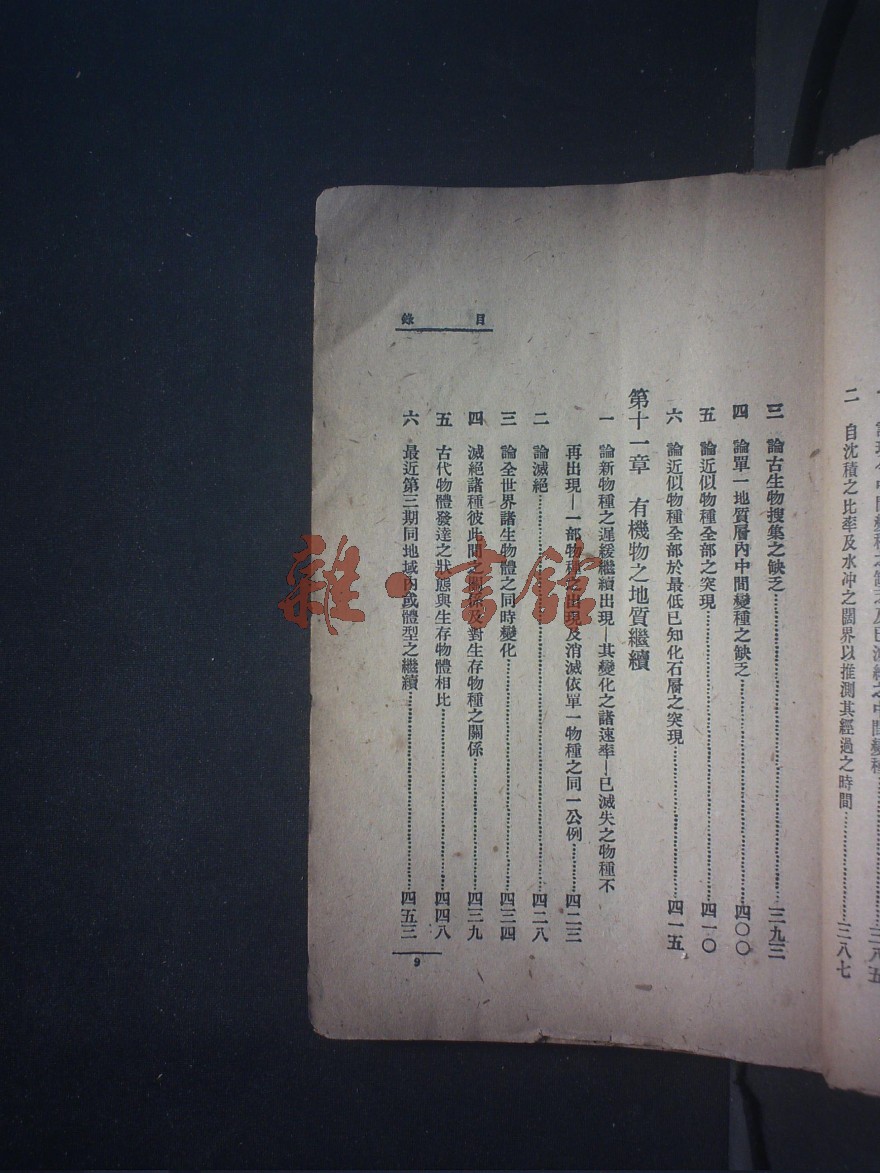 二 自沈積之比率及水冲之闊界以推測其經過之時間……三八七
目錄
三 論古生物搜集之缺乏……三九三
四 論單一地質層內中間變種之缺乏……四〇〇
五 論近似物種全部之突現……四一〇
六 論近似物種全部於最低已知化石層之突現……四一五
第十一章 有機物之地質繼續
一 論新物種之遲緩繼續出現—其變化之諸速率—已滅失之物種不
再出現—一部物種之出現及消滅依單一物種之同一公例……四二三
二 論滅絕……四二八
三 論全世界諸生物體之同時變化……四三四
四 滅絕諸種彼此間之關係及對生存物種之關係……四三九
五 古代物體發達之狀態與生存物體相比……四四八
六 最近第三期同地域內體型之繼續……四五三
9
雜·書館